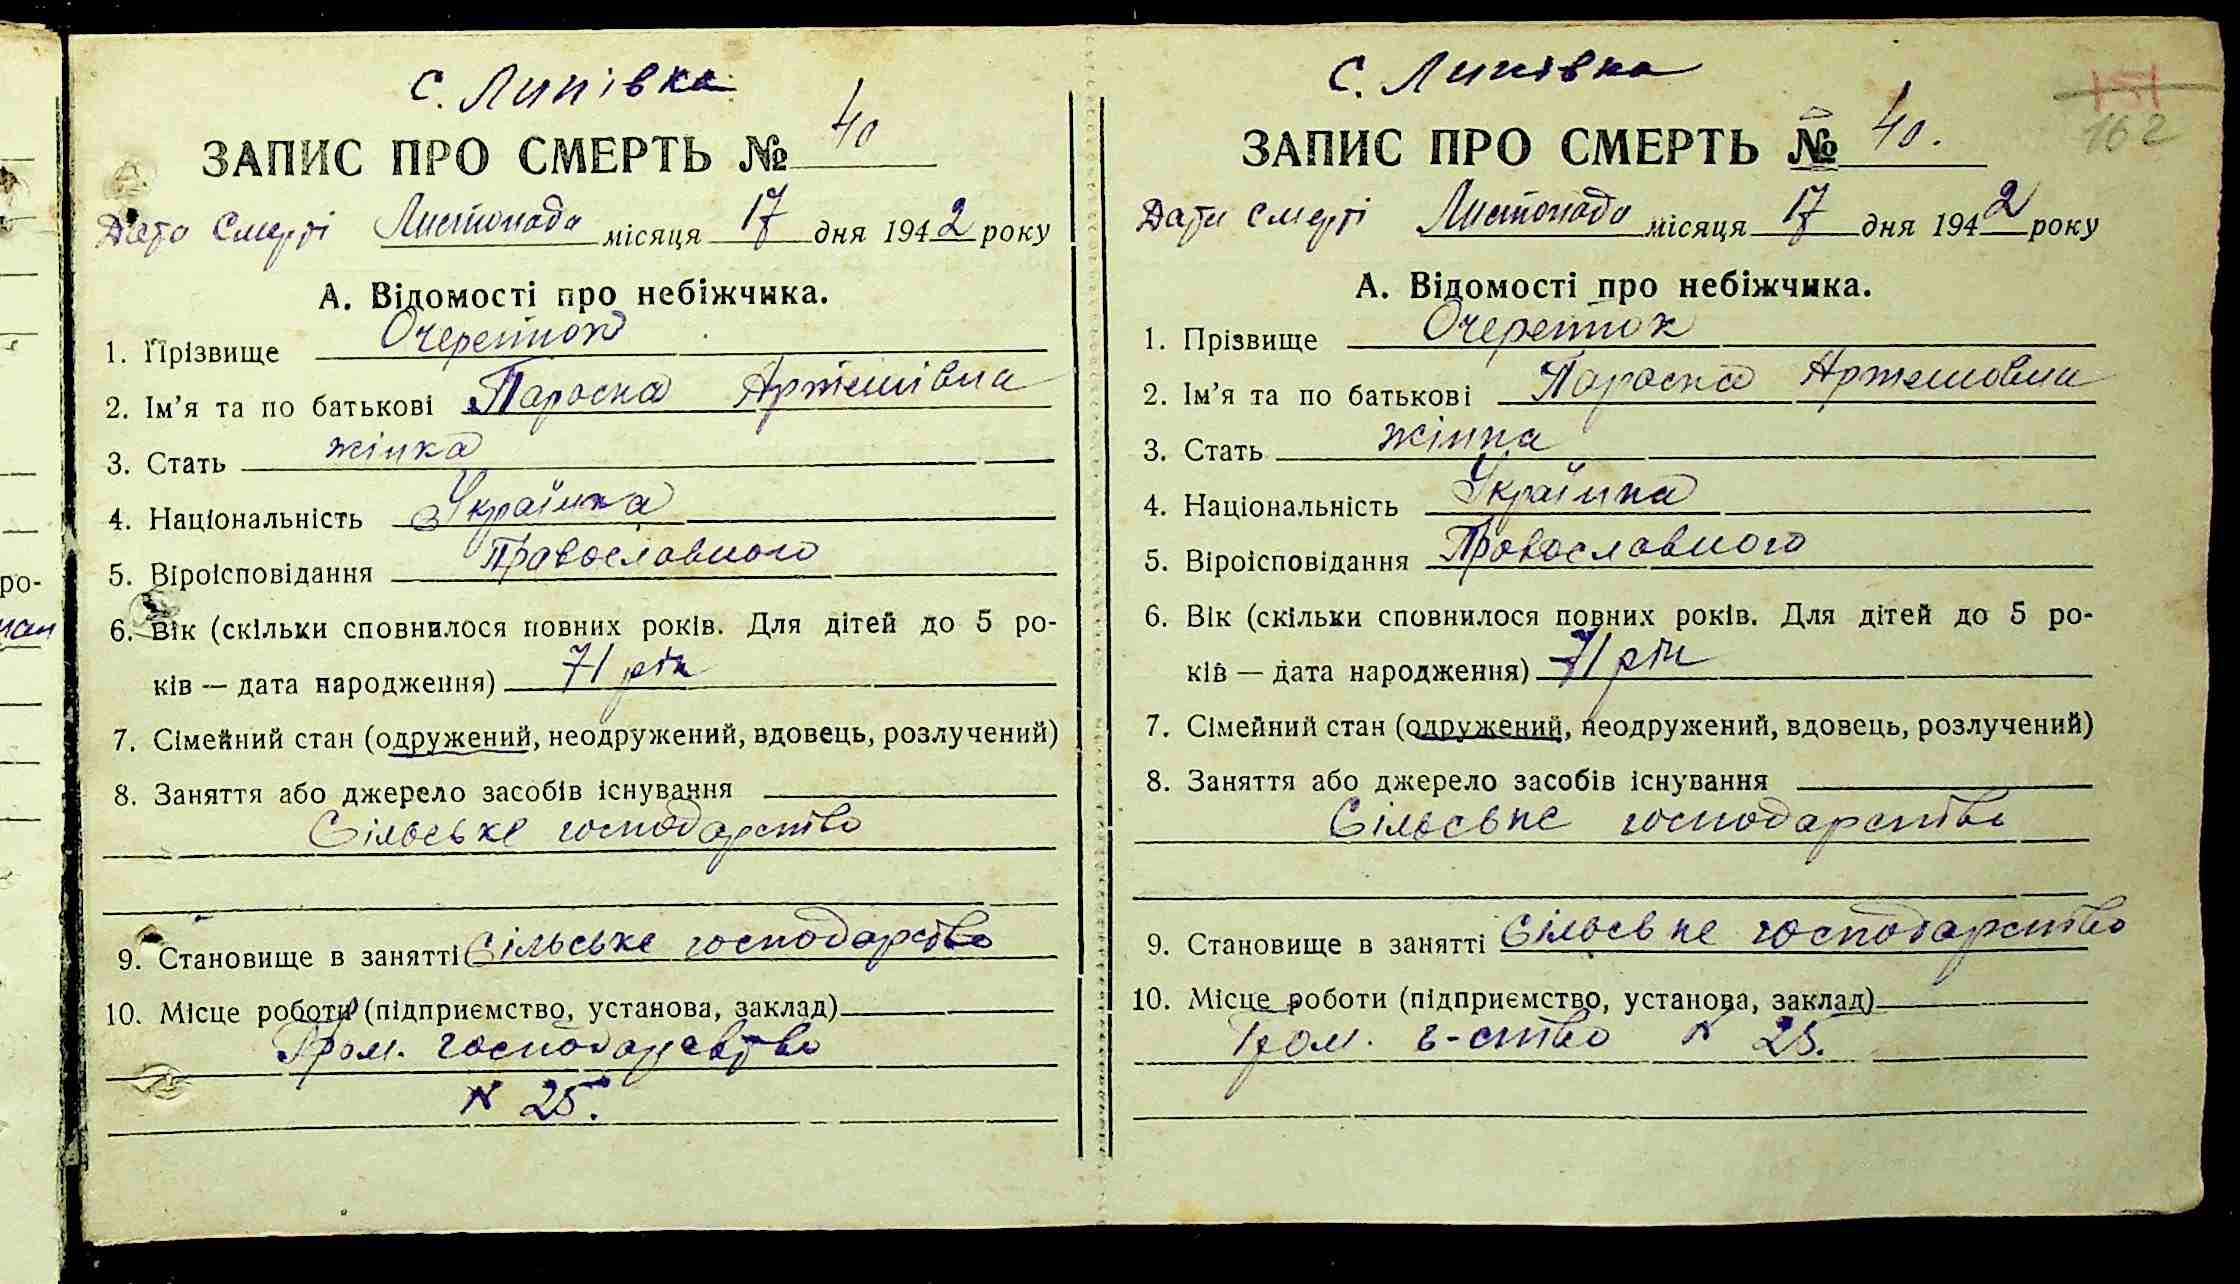 ро-
с. Липівка
ЗАПИС ПРО СМЕРТЬ № 40
Дата Смерті Листопада місяця 17 дня 1942 року
А. Відомості про небіжчика.
1. Прізвище Очереток
2. Ім'я та по батькові Параска Артемівна
3. Стать жінка
4. Національність Українка
5. Віроісповідання Православного
6. Вік (скільки сповнилося повних років. Для дітей до 5 ро-
ків — дата народження) 71 рік
7. Сімейний стан (одружений, неодружений, вдовець, розлучений)
8. Заняття або джерело засобів існування
Сільське господарство
9. Становище в занятті Сільське господарство
10. Місце роботи (підприємство, установа, заклад)
Гром. господарство
N 25.
с. Липівка
151
162
ЗАПИС ПРО СМЕРТЬ № 40.
Дата смерті Листопада місяця 17 дня 1942 року
А. Відомості про небіжчика.
1. Прізвище Очереток
2. Ім'я та по батькові Параска Артемовна
3. Стать жінка
4. Національність Українка
5. Віроісповідання Православного
6. Вік (скільки сповнилося повних років. Для дітей до 5 ро-
ків — дата народження) 71 рік
7. Сімейний стан (одружений, неодружений, вдовець, розлучений)
8. Заняття або джерело засобів існування
Сільське господарство
9. Становище в занятті Сільське господарство
10. Місце роботи (підприємство, установа, заклад)
Гром. г-ство N 25.